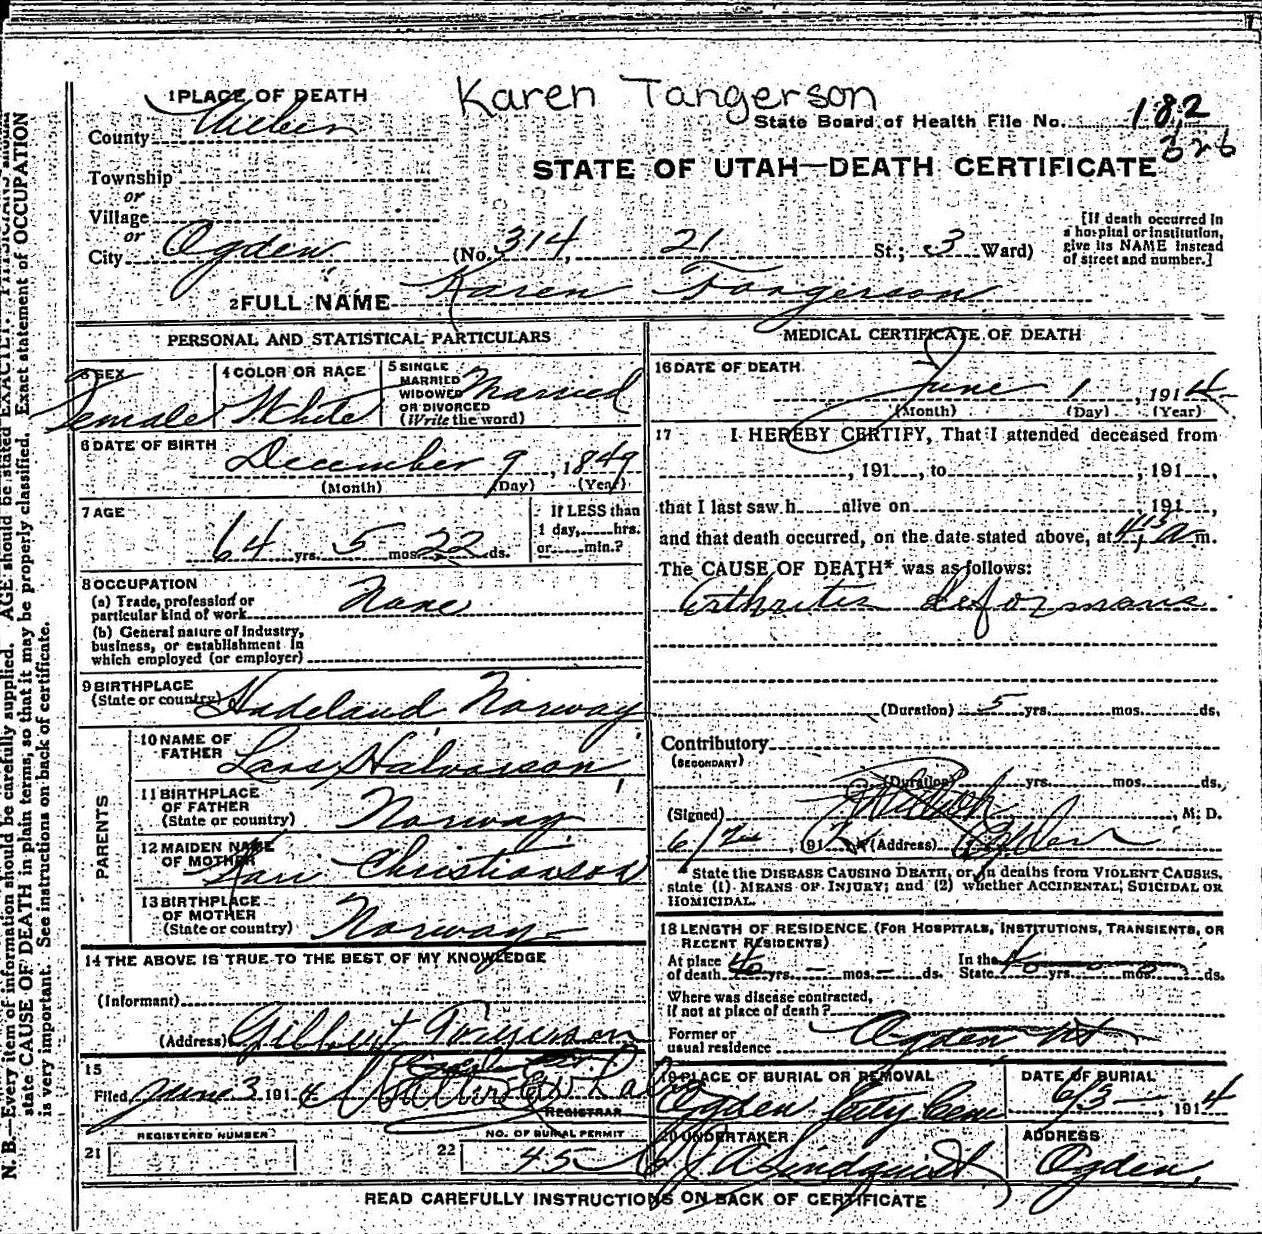 Karen Tangerson
1 PLACE OF DEATH
County Weber
State Board of Health File No. 182
326
STATE OF UTAH—DEATH CERTIFICATE
Township
or
Village
or
City Ogden (No. 314, 21 St.; 3 Ward)
[If death occurred in
a hospital or institution,
give its NAME instead
of street and number.]
2 FULL NAME Karen Tangerson
PERSONAL AND STATISTICAL PARTICULARS
3 SEX
Female
4 COLOR OR RACE
White
5 SINGLE
MARRIED
WIDOWED
OR DIVORCED
(Write the word)
Married
6 DATE OF BIRTH
December 9, 1849
(Month) (Day) (Year)
7 AGE
64 yrs. 5 mos. 22 ds.
If LESS than
1 day, hrs.
or min.?
8 OCCUPATION
(a) Trade, profession or
particular kind of work None
(b) General nature of industry,
business, or establishment in
which employed (or employer)
9 BIRTHPLACE
(State or country) Hadeland Norway
PARENTS
10 NAME OF
FATHER Lars Halvorson
11 BIRTHPLACE
OF FATHER
(State or country) Norway
12 MAIDEN NAME
OF MOTHER Kari Christianson
13 BIRTHPLACE
OF MOTHER
(State or country) Norway
14 THE ABOVE IS TRUE TO THE BEST OF MY KNOWLEDGE
(Informant)
(Address) Gilbert
15
Filed June 3 1914
REGISTRAR
REGISTERED NUMBER
21
NO. OF BURIAL PERMIT
22 45
MEDICAL CERTIFICATE OF DEATH
16 DATE OF DEATH
June 1, 1914
(Month) (Day) (Year)
17 I HEREBY CERTIFY, That I attended deceased from
, 191 , to , 191 ,
that I last saw h alive on , 191 ,
and that death occurred, on the date stated above, at 4,15 m.
The CAUSE OF DEATH* was as follows:
Arthritis Deformans
(Duration) 5 yrs. mos. ds.
Contributory
(SECONDARY)
(Duration) yrs. mos. ds.
(Signed) , M. D.
6/2 , 191 (Address) Ogden
*State the DISEASE CAUSING DEATH, or, in deaths from VIOLENT CAUSES,
state (1) MEANS OF INJURY; and (2) whether ACCIDENTAL, SUICIDAL OR
HOMICIDAL.
18 LENGTH OF RESIDENCE (FOR HOSPITALS, INSTITUTIONS, TRANSIENTS, OR
RECENT RESIDENTS)
At place
of death 46 yrs. – mos. – ds.
In the
State yrs. mos. ds.
Where was disease contracted,
if not at place of death?
Former or
usual residence Ogden Ut
19 PLACE OF BURIAL OR REMOVAL
Ogden City Cem
DATE OF BURIAL
6/3 , 1914
20 UNDERTAKER
J A Lindquist
ADDRESS
Ogden,
READ CAREFULLY INSTRUCTIONS ON BACK OF CERTIFICATE
N. B.—Every item of information should be carefully supplied. AGE should be stated EXACTLY. PHYSICIANS should
state CAUSE OF DEATH in plain terms, so that it may be properly classified. Exact statement of OCCUPATION
is very important. See instructions on back of certificate.